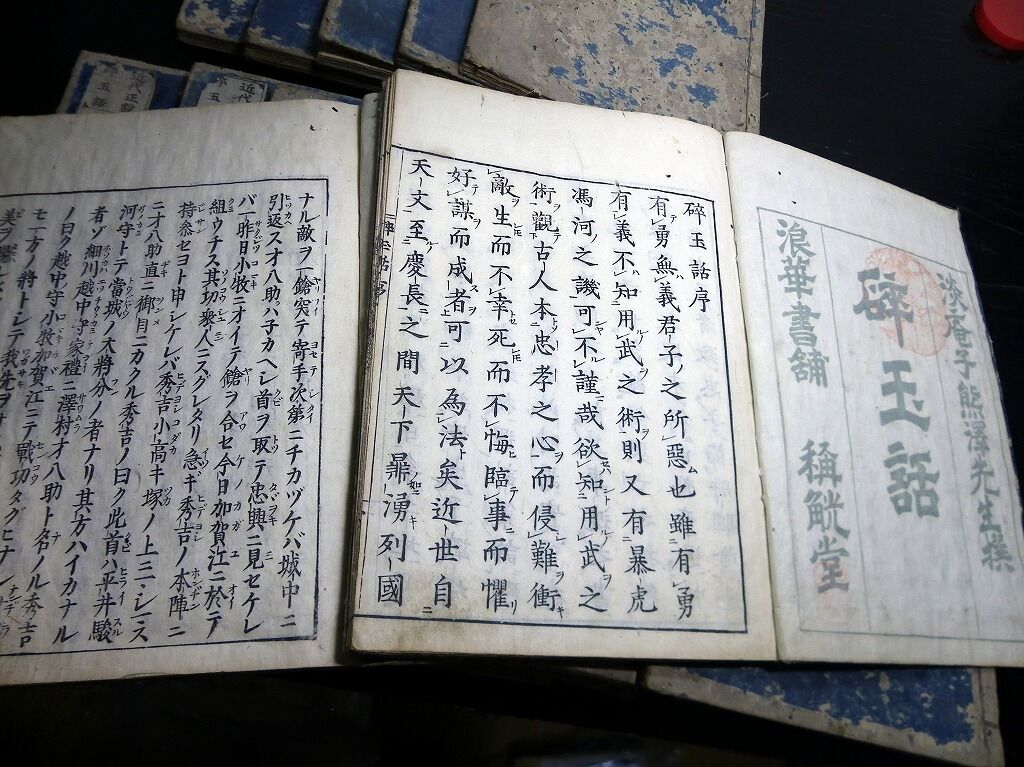 淡菴子熊澤先生撰
碎玉話
浪華書舖 稱觥堂
碎玉話序
有勇無義君子之所惡也雖有勇
有義不知用武之術則又有暴虎
馮河之譏可不謹哉欲知用武之
術觀古人本忠孝之心而侵難衝
敵生而不幸死而不悔臨事而懼
好謀而成者可以為法矣近世自
天文至慶長之間天下㬥湧列國
ナル敵ヲ一鎗突テ寄手次第ニチカヅケバ城中ニ
引返スオ八助ハ子カヘレ首ヲ取テ忠興ニ見セケレ
バ昨日小牧ニオイテ鎗ヲ合セ今日加賀江ニ於テ
組ウチス其功衆人ニスグレタリ急ギ秀吉ノ本陣ニ
持參セヨト申レケレバ秀吉小高キ塚ノ上ニヰレス
ニオ八助直ニ御目ニカクル秀吉ノ曰ク此首ハ平井駿
河守トテ當城ノ大將分ノ者ナリ其方ハイカナル
者ゾ細川越中守家禮ニ澤村才八助ト名ノル秀吉
ノ曰ク越中守小牧加賀江ニテ戰功タグヒナシ
モ一方ノ將トシテ我先ヲ
近代正說
玉話
近代